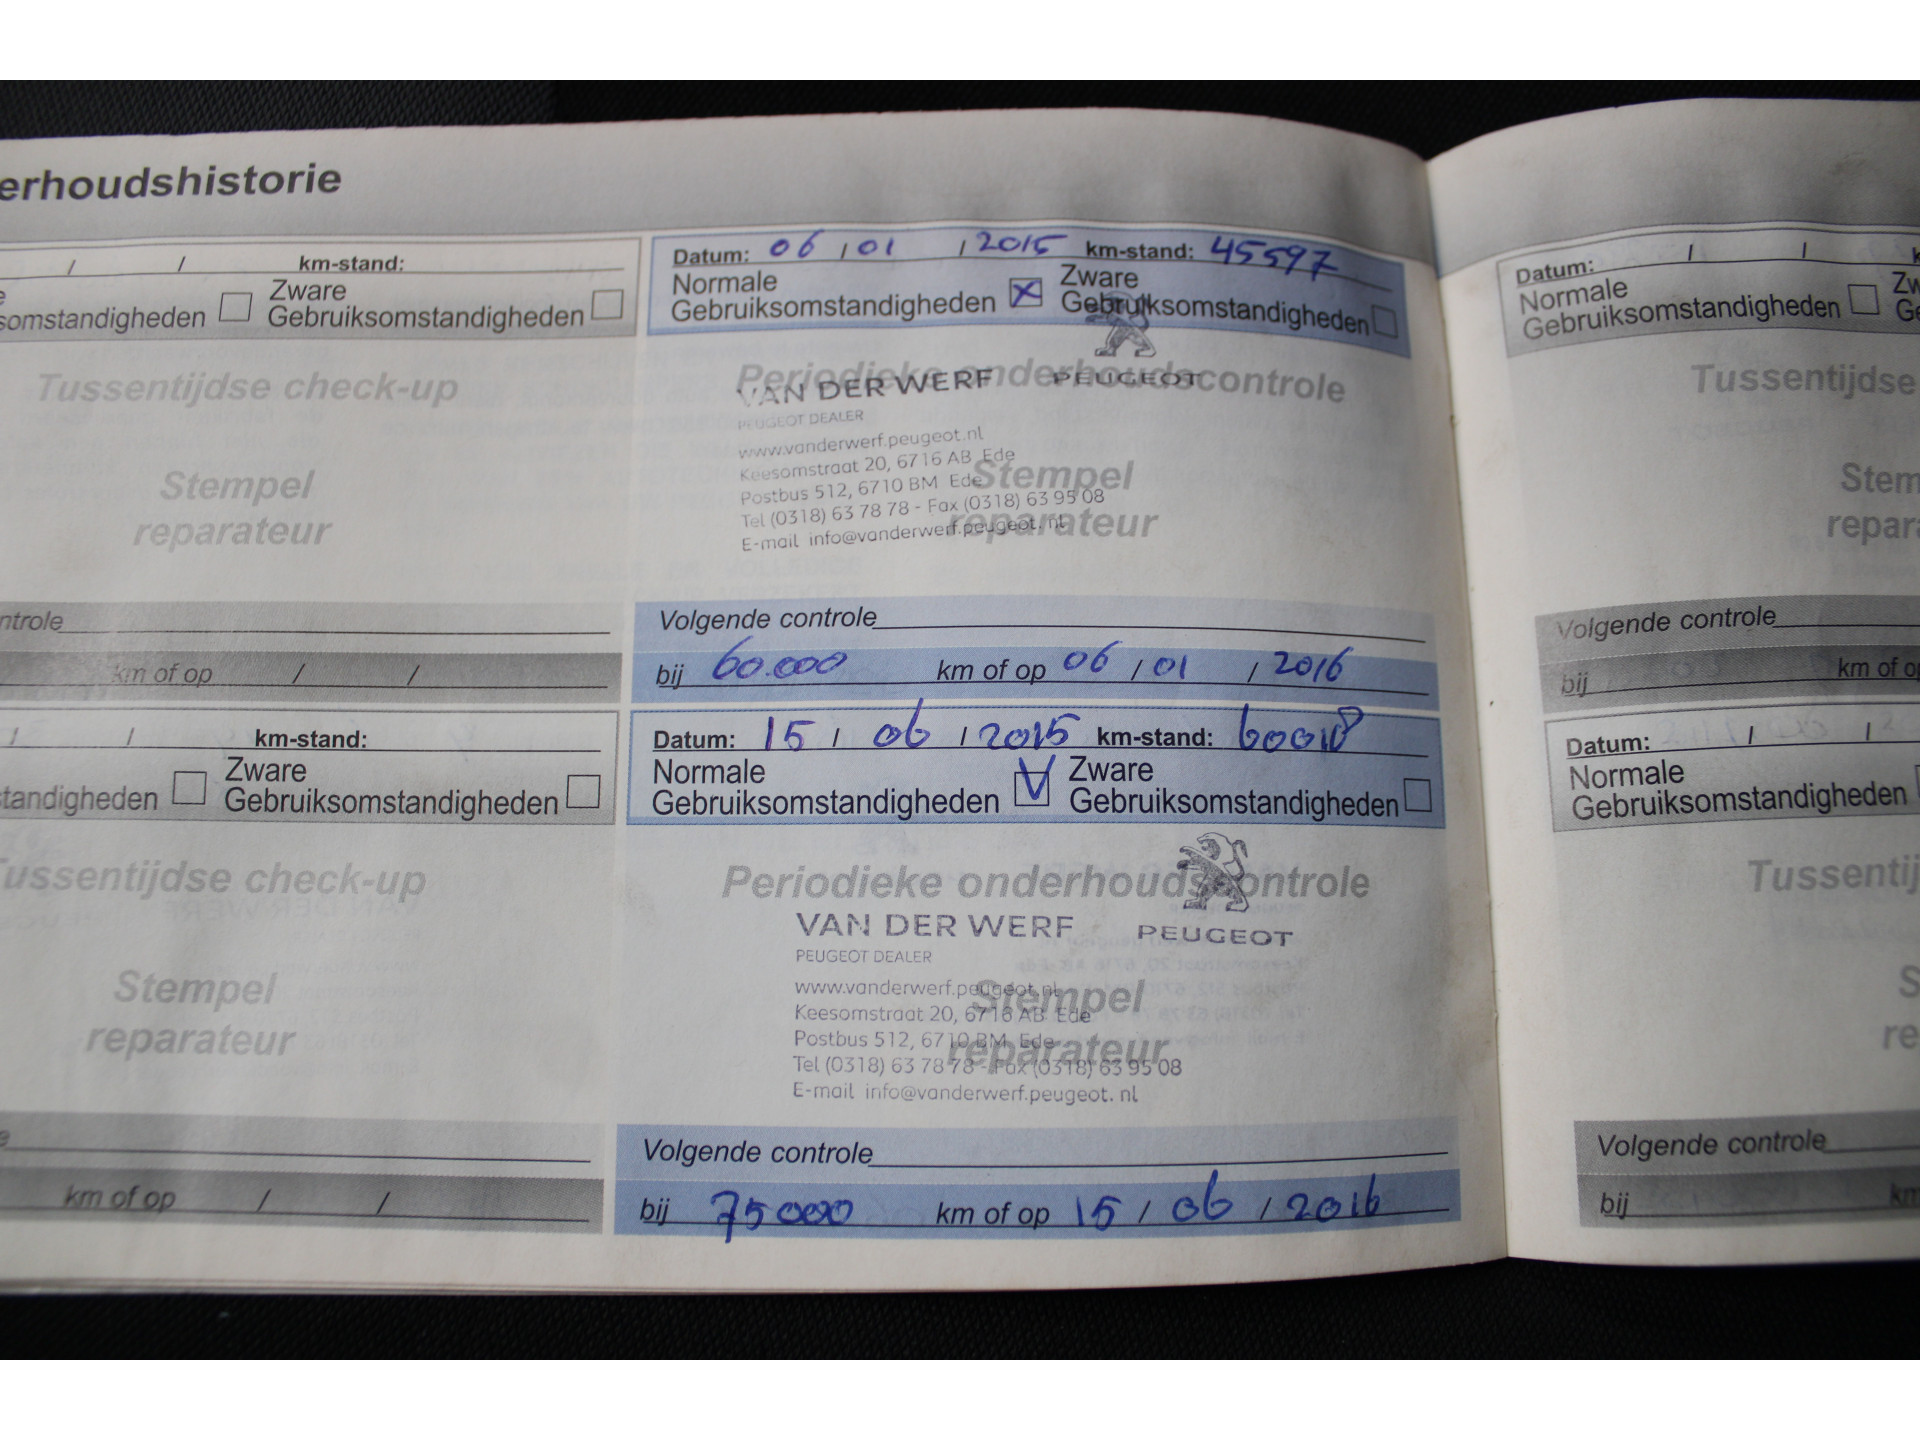 erhoudshistorie
/ / km-stand:
somstandigheden
Zware
Gebruiksomstandigheden
Tussentijdse check-up
Stempel
reparateur
ntrole
km of op / /
/ / km-stand:
tandigheden
Zware
Gebruiksomstandigheden
Tussentijdse check-up
Stempel
reparateur
e
km of op / /
Datum: 06 / 01 / 2015 km-stand: 45597
Normale
Gebruiksomstandigheden
Zware
Gebruiksomstandigheden
Periodieke onderhoudscontrole
VAN DER WERF
PEUGEOT
PEUGEOT DEALER
www.vanderwerf.peugeot.nl
Keesomstraat 20, 6716 AB Ede
Postbus 512, 6710 BM Ede
Tel (0318) 63 78 78 - Fax (0318) 63 95 08
E-mail info@vanderwerf.peugeot. nl
Stempel
reparateur
Volgende controle
bij 60.000 km of op 06 / 01 / 2016
Datum: 15 / 06 / 2015 km-stand: 60018
Normale
Gebruiksomstandigheden
Zware
Gebruiksomstandigheden
Periodieke onderhoudscontrole
VAN DER WERF
PEUGEOT
PEUGEOT DEALER
www.vanderwerf.peugeot.nl
Keesomstraat 20, 6716 AB Ede
Postbus 512, 6710 BM Ede
Tel (0318) 63 78 78 - Fax (0318) 63 95 08
E-mail info@vanderwerf.peugeot. nl
Stempel
reparateur
Volgende controle
bij 75000 km of op 15 / 06 / 2016
Datum: / /
Normale
Gebruiksomstandigheden
Zw
Ge
Tussentijdse
Stem
repar
Volgende controle
bij km of op
Datum: / /
Normale
Gebruiksomstandigheden
Tussentij
S
re
Volgende controle
bij km